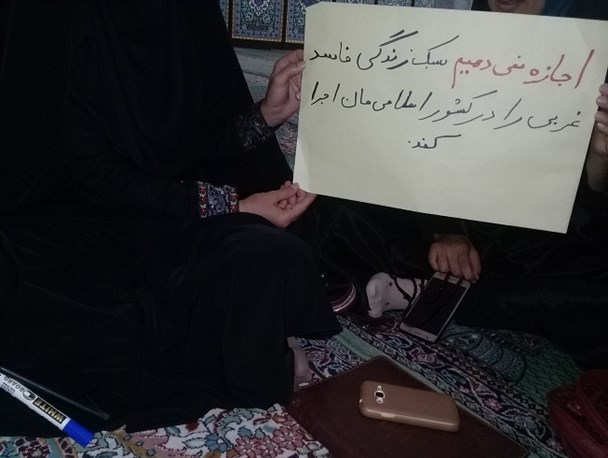 اجازه نمی دهیم سبک زندگی فاسد
غربی را در کشور اسلامی مان اجرا
کنند.
WHITE BOARD